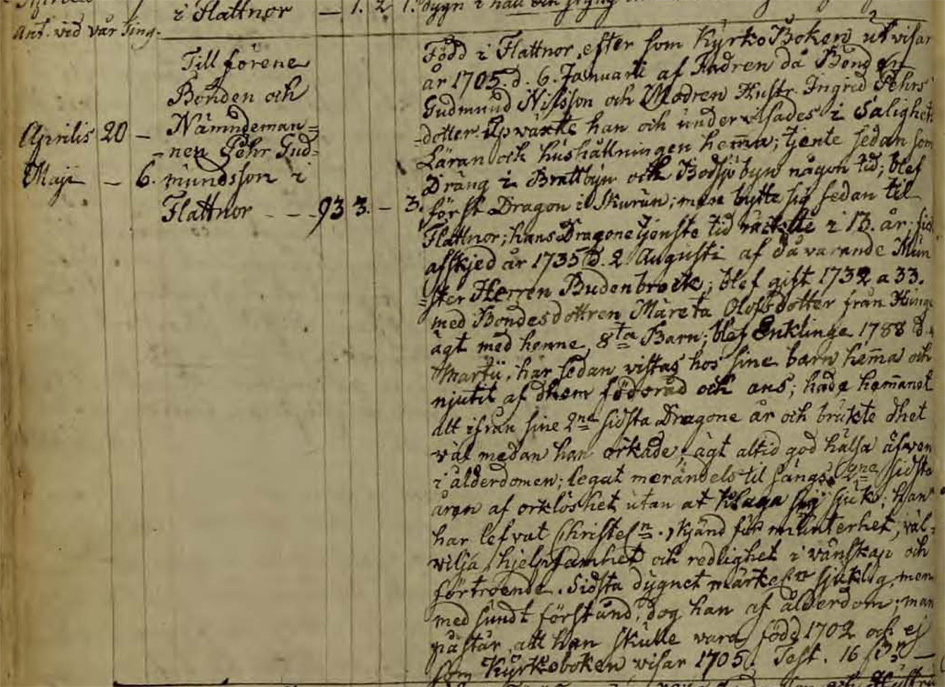 i Flattnor — 1. 2 1. dygn i
Ant. vid vår Ting.
Till förene
Bonden och
Nämndeman=
=nen Pehr Gud=
mundsson i
Flattnor - - 93 3. - 3.
Aprilis 20 —
Maji — 6.
Född i Flattnor, efter som KyrkoBoken utvisar
år 1705. d. 6. Januarii af Fadren då Bonden
Gudmund Nilsson och Modren Hustr. Ingrid Pehrs
=dotter. Upväxte han och underwisades i Salighet
Läran och hushåttningen hema; tjente sedan som
Dräng i Brattbyn och Bodsjöbyn någon tid; blef
först Dragon i Skurun; men bytte sig sedan til
Flattnor; hans Dragone tjenste tid räckte i 13. år;
afskjed år 1735 d. 2 Augusti af då varande Mün
=ster Herren Budenbrock; blef gift 1732 a 33.
med Bondesdottren Märeta Olofsdotter från
ägt med henne 8ta Barn; blef Enklinge 1788 d.
Martii, har sedan vistas hos sine barn hema och
njutit af dhem födoråd och ans; hade hemanet
alt ifrån sine 2ne sidsta Dragone år och brukte dhet
väl medan han orkade; ägt altid god hälsa äfwen
i ålderdomen; legat merändels til sängs 2ne sidsta
åren af orklöshet utan at klaga sig sjuk; han
har lefvat Christel:n, kjänd för munterhet, väl=
wilja, hjelpsamhet och redlighet i vänskap och
förtroende. Sidsta dygnet märktes sjuklig, men
med sundt förstånd, dog han af ålderdom; man
påstår, att han skulle vara född 1702 och ej
som Kyrkoboken visar 1705. Test. 16